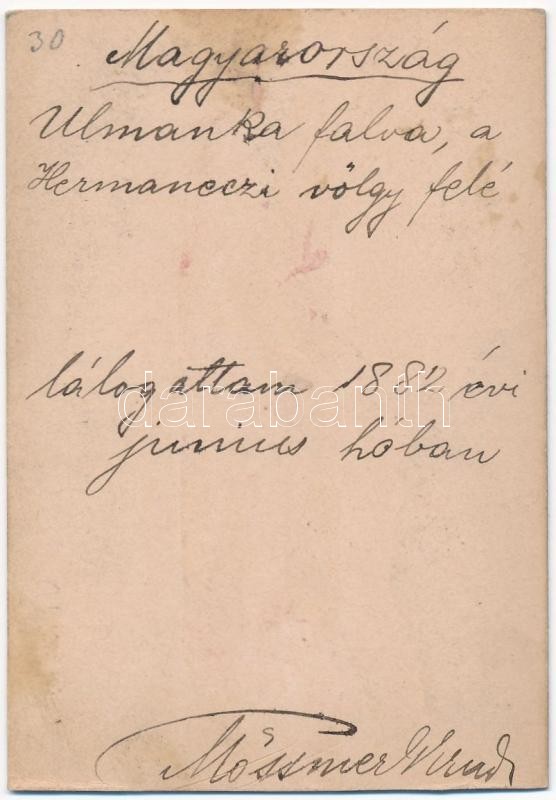 30
Magyarország
Ulmanka falva, a
Hermaneczi völgy felé
látogattam 1882 évi
darabanth
junius hóban
Mössmer